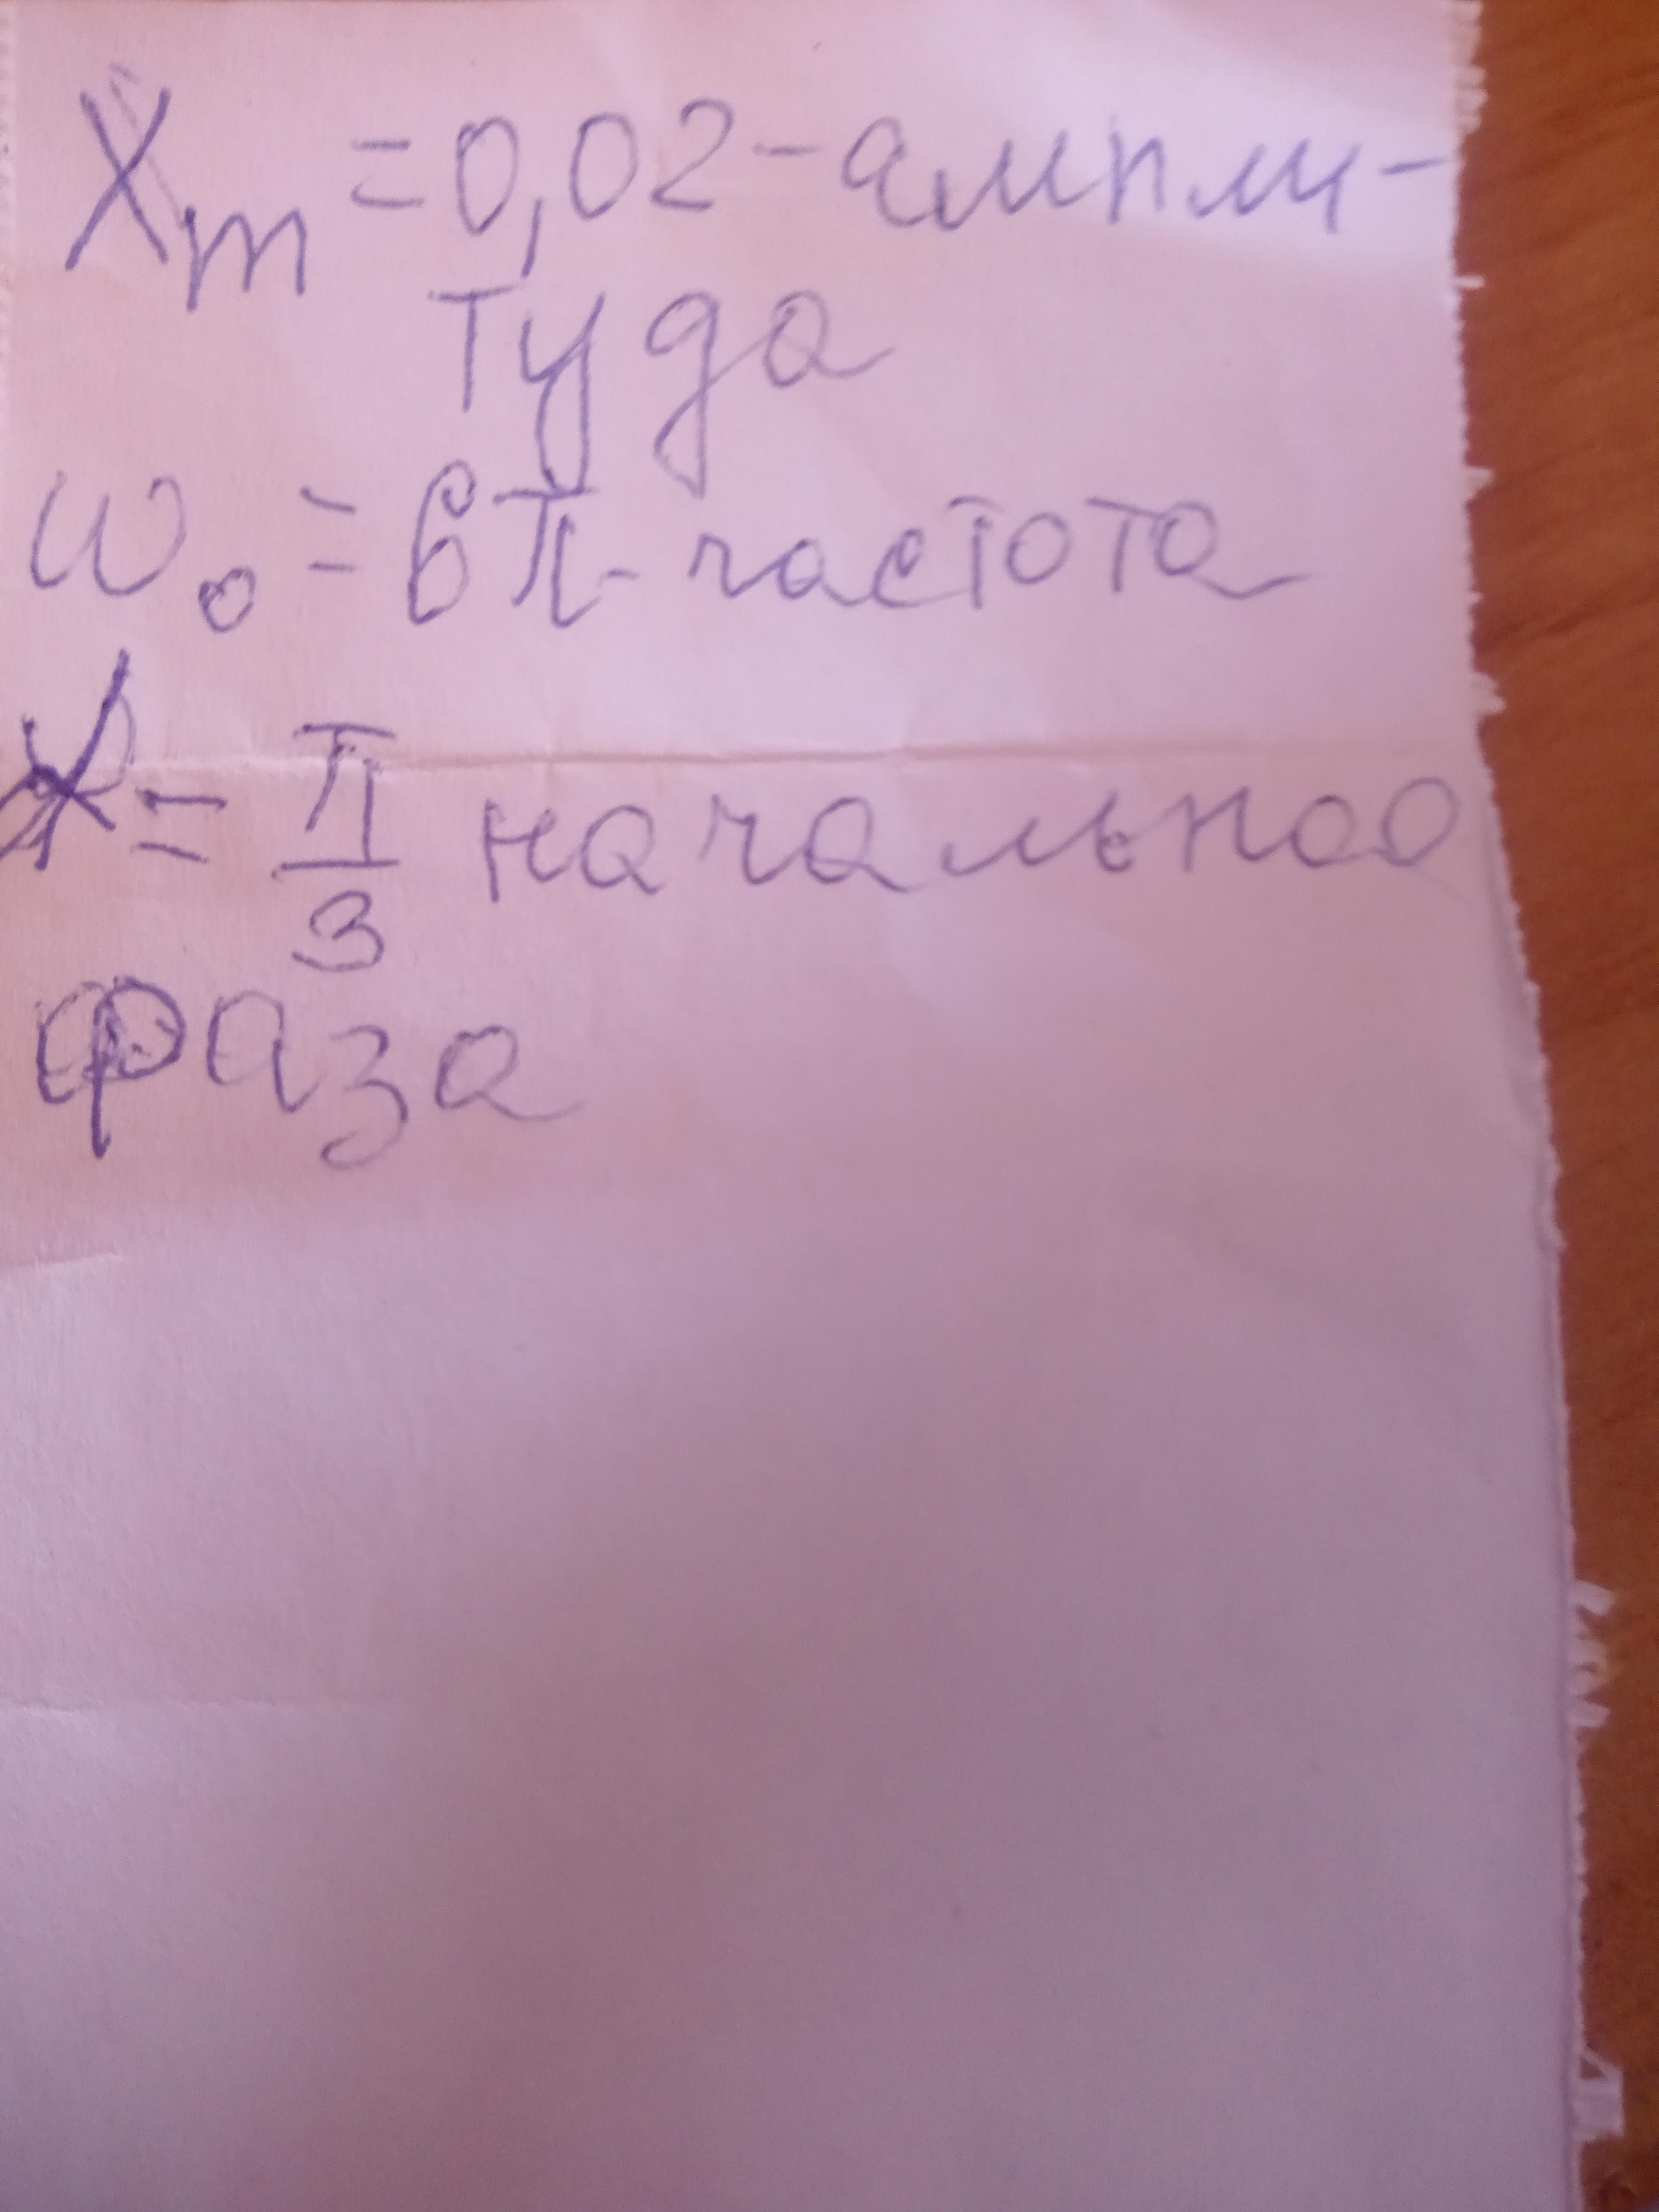 Xm = 0,02 - ампли-
туда
ω₀ = 6π - частота
= π/3 начальноо
фаза